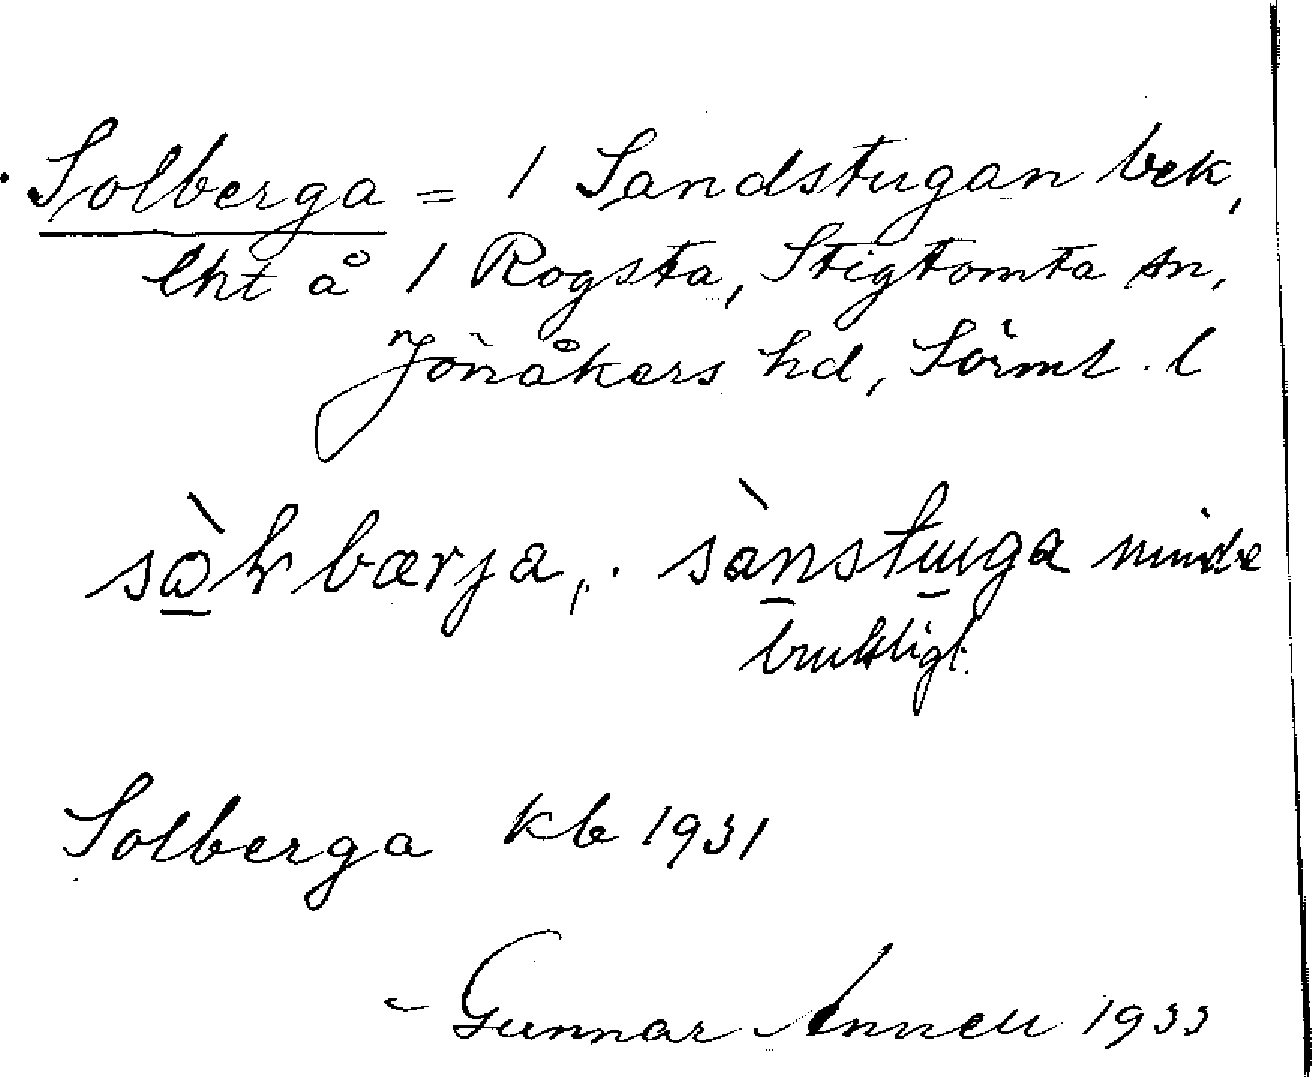 Solberga = 1 Sandstugan bek,
lht å 1 Rogsta, Stigtomta sn,
Jönåkers hd, Sörml. l
sanstuga mindre
brukligt.
Solberga kb 1931
Gunnar Annell 1933